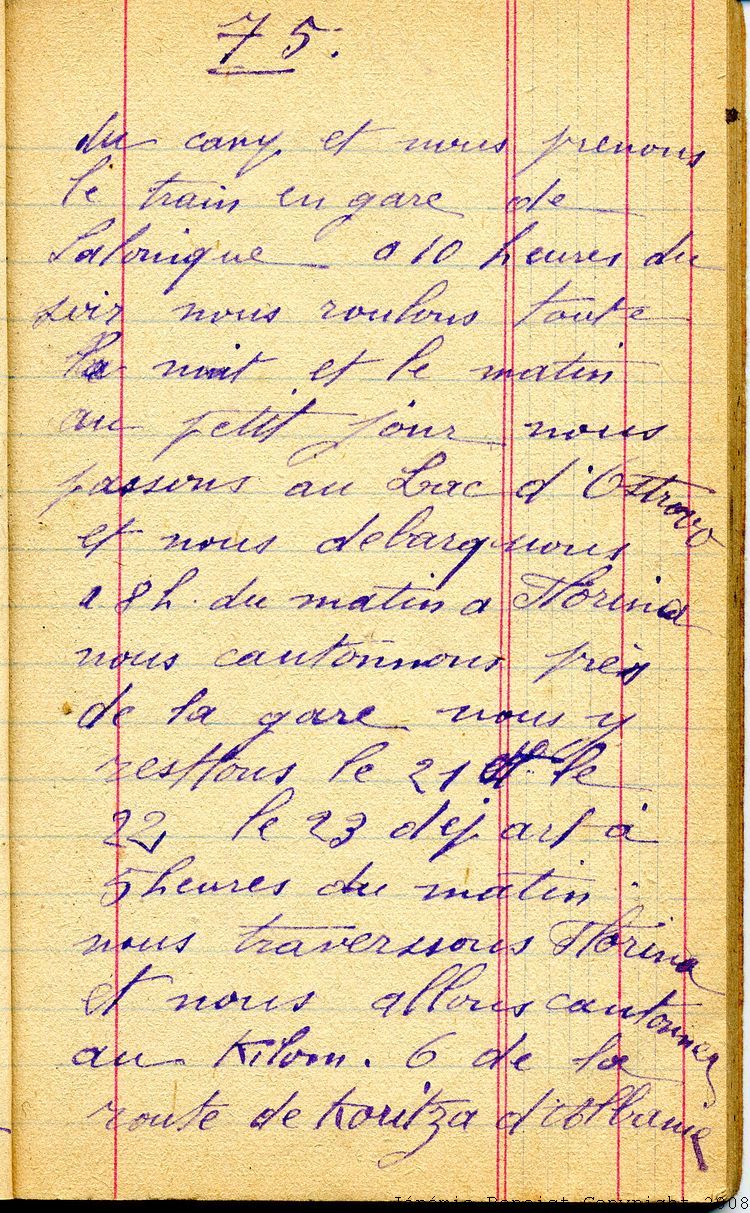 75.
du camp et nous prenons
le train en gare de
Salonique a 10 heures du
soir nous roulons toute
la nuit et le matin
au petit jour nous
passons au Lac d'Ostrovo
et nous debarquons
a 8h. du matin a Florina
nous cantonnons près
de la gare nous y
resttons le 21 et le
22, le 23 départ à
5 heures du matin
nous traverssons Florina
et nous allons cantonner
au Kilom. 6 de la
route de Koritza d'Albanie
Jérémie Benoist Copyright 2008